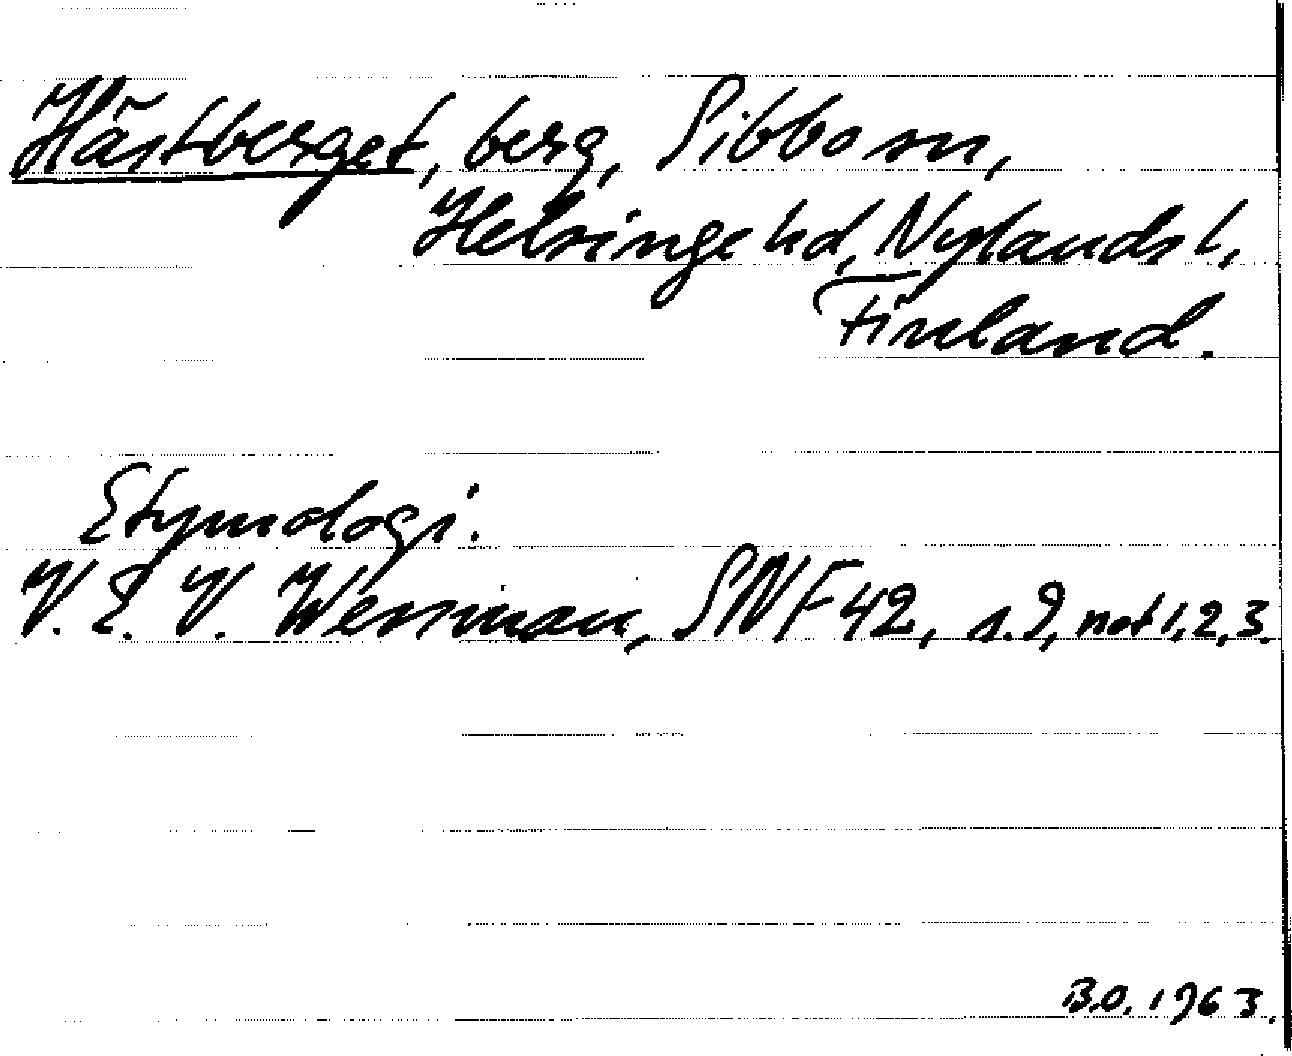 Hästberget, berg, Sibbo sn,
Helsinge hd, Nylands l,
Finland.
Etymologi.
V. E. V. Wessman, SNF 42, s. 9, not 1, 2, 3.
B.O. 1963.